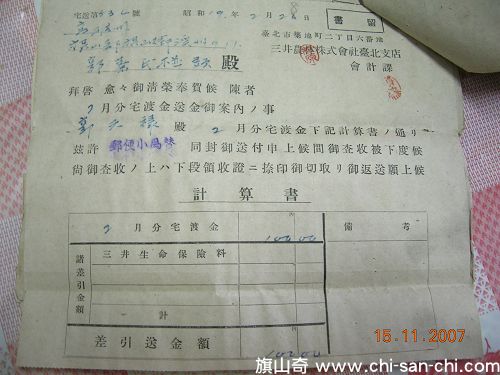 宅送第 號 昭和19年2月28日 書留
臺北市築地町二丁目六番地
三井農林株式會社臺北支店
會計課
殿
拜啓 愈々御清榮奉賀候 陳者
2月分宅渡金送金御案內ノ事
殿 2月分宅渡金下記計算書ノ通リ
玆許 郵便小為替 同封御送付申上候間御查收被下度候
尙御查收ノ上ハ下段領收證ニ捺印御切取リ御返送願上候
計算書
2月分宅渡金 100 00 備考
諸差引金額
三井生命保險料
計
差引送金額 100 00
15.11.2007
旗山奇 www.chi-san-chi.com